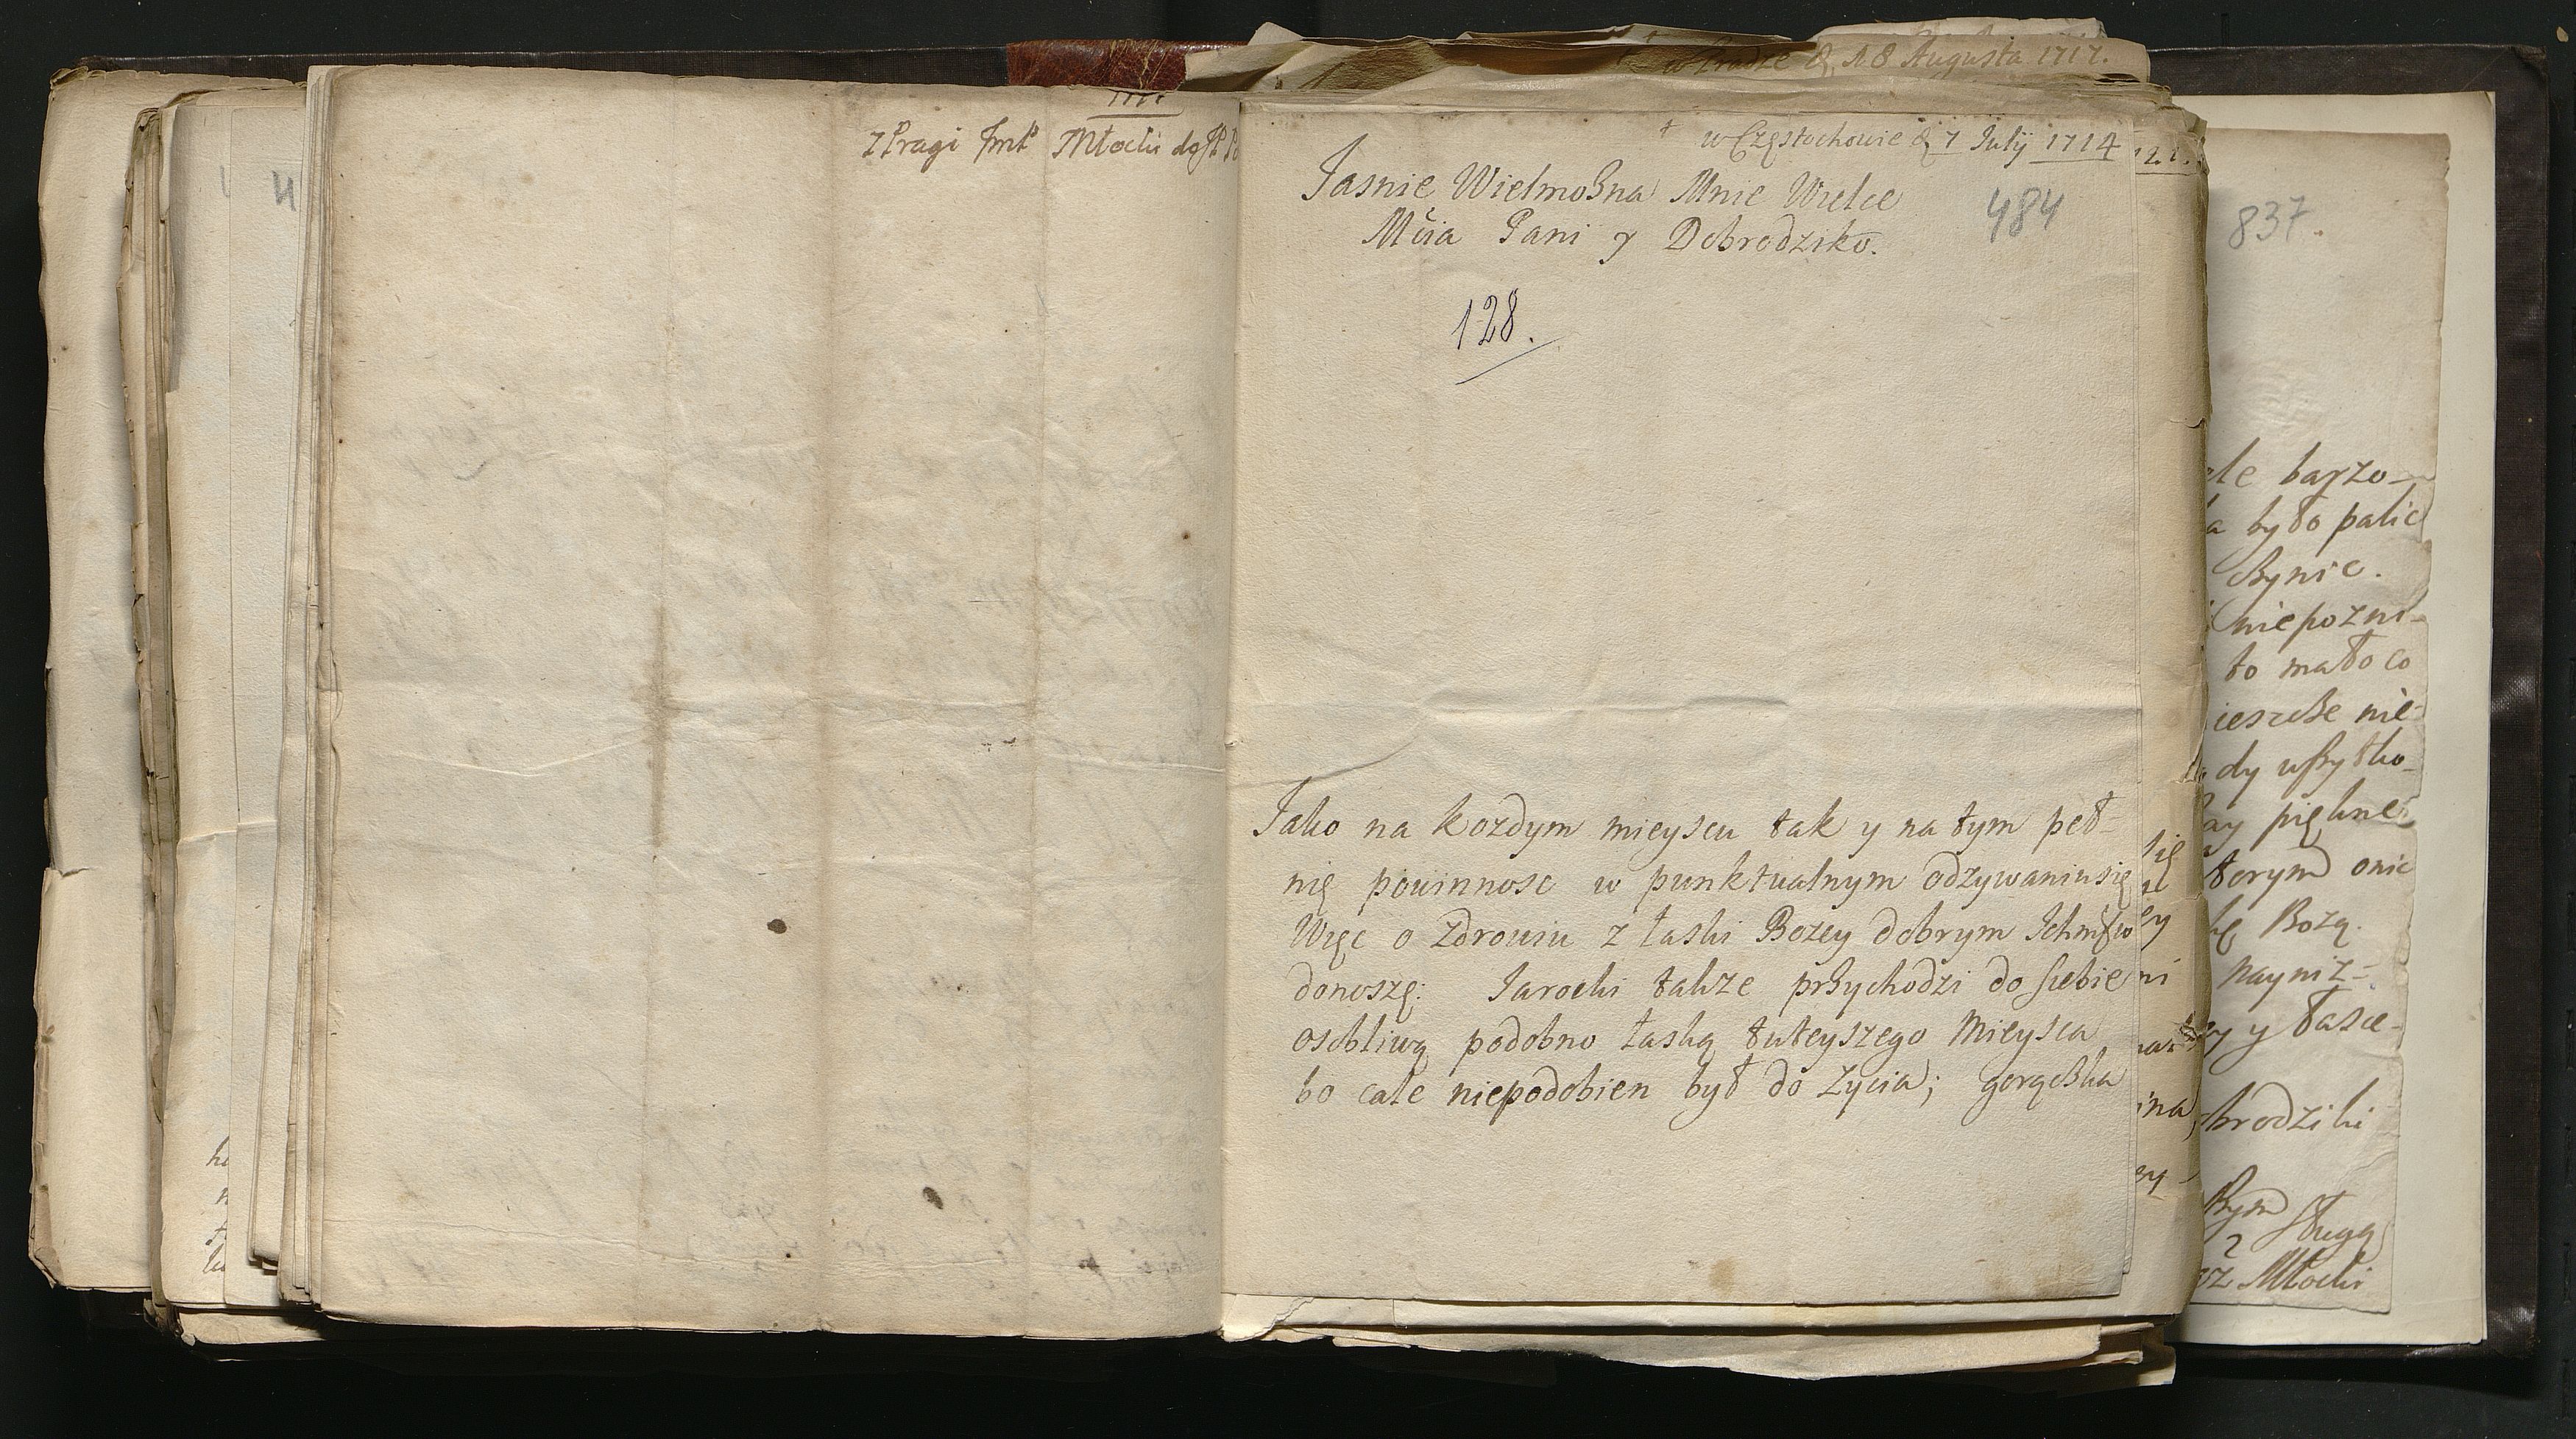 Z Pragi Jmć Młocki do JP
w Pradze d. 18 Augusta 1717.
† w Częstochowie d. 7 July 1714
Jasnie Wielmożna Mnie Wielce
Mćia Pani y Dobrodziko.
484
128.
Jako na kozdym mieyscu tak y na tym peł-
nię powinnosc w punktualnym odzywaniu się
Więc o Zdrowiu z łaski Bozey dobrym Ichmćiow
donoszę: Jarocki takze przychodzi do siebie
osobliwą podobno łaską tuteyszego Mieysca
bo cale niepodobien był do Zycia; gorączka
837.
ale barzo
a było palic
czynic.
niepozni-
to mało co
ieszcze nie-
dy wszytko
ay piękne
ktorym onic
kę Bozą.
nayniz-
ey y łasce-
obrodziki
szym
sługą
Młocki